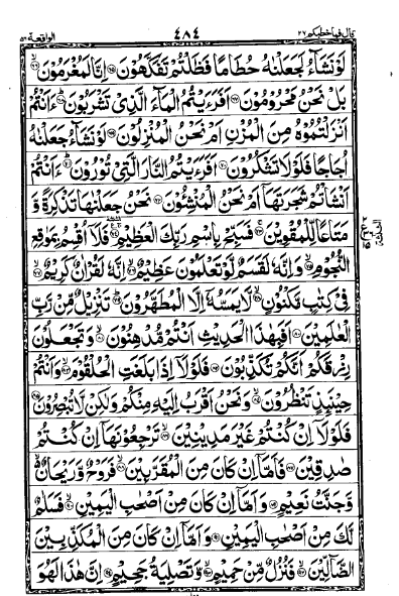 قال فما خطبكم ٢٧ ٤٨٤ الواقعة ٥٦
لَوْ نَشَآءُ لَجَعَلْنٰهُ حُطَامًا فَظَلْتُمْ تَفَكَّهُوْنَ ۝٦٥ اِنَّا لَمُغْرَمُوْنَ ۝٦٦
بَلْ نَحْنُ مَحْرُوْمُوْنَ ۝٦٧ اَفَرَءَيْتُمُ الْمَآءَ الَّذِيْ تَشْرَبُوْنَ ۝٦٨ ءَاَنْتُمْ
اَنْزَلْتُمُوْهُ مِنَ الْمُزْنِ اَمْ نَحْنُ الْمُنْزِلُوْنَ ۝٦٩ لَوْ نَشَآءُ جَعَلْنٰهُ
اُجَاجًا فَلَوْلَا تَشْكُرُوْنَ ۝٧٠ اَفَرَءَيْتُمُ النَّارَ الَّتِيْ تُوْرُوْنَ ۝٧١ ءَاَنْتُمْ
اَنْشَاْتُمْ شَجَرَتَهَآ اَمْ نَحْنُ الْمُنْشِـُٔوْنَ ۝٧٢ نَحْنُ جَعَلْنٰهَا تَذْكِرَةً وَّ
مَتَاعًا لِّلْمُقْوِيْنَ ۝٧٣ فَسَبِّحْ بِاسْمِ رَبِّكَ الْعَظِيْمِ ۝٧٤ فَلَآ اُقْسِمُ بِمَوٰقِعِ
النُّجُوْمِ ۝٧٥ وَاِنَّهٗ لَقَسَمٌ لَّوْ تَعْلَمُوْنَ عَظِيْمٌ ۝٧٦ اِنَّهٗ لَقُرْاٰنٌ كَرِيْمٌ ۝٧٧
فِيْ كِتٰبٍ مَّكْنُوْنٍ ۝٧٨ لَّا يَمَسُّهٗٓ اِلَّا الْمُطَهَّرُوْنَ ۝٧٩ تَنْزِيْلٌ مِّنْ رَّبِّ
الْعٰلَمِيْنَ ۝٨٠ اَفَبِهٰذَا الْحَدِيْثِ اَنْتُمْ مُّدْهِنُوْنَ ۝٨١ وَتَجْعَلُوْنَ
رِزْقَكُمْ اَنَّكُمْ تُكَذِّبُوْنَ ۝٨٢ فَلَوْلَآ اِذَا بَلَغَتِ الْحُلْقُوْمَ ۝٨٣ وَاَنْتُمْ
حِيْنَئِذٍ تَنْظُرُوْنَ ۝٨٤ وَنَحْنُ اَقْرَبُ اِلَيْهِ مِنْكُمْ وَلٰكِنْ لَّا تُبْصِرُوْنَ ۝٨٥
فَلَوْلَآ اِنْ كُنْتُمْ غَيْرَ مَدِيْنِيْنَ ۝٨٦ تَرْجِعُوْنَهَآ اِنْ كُنْتُمْ
صٰدِقِيْنَ ۝٨٧ فَاَمَّآ اِنْ كَانَ مِنَ الْمُقَرَّبِيْنَ ۝٨٨ فَرَوْحٌ وَّرَيْحَانٌ
وَّجَنَّتُ نَعِيْمٍ ۝٨٩ وَاَمَّآ اِنْ كَانَ مِنْ اَصْحٰبِ الْيَمِيْنِ ۝٩٠ فَسَلٰمٌ
لَّكَ مِنْ اَصْحٰبِ الْيَمِيْنِ ۝٩١ وَاَمَّآ اِنْ كَانَ مِنَ الْمُكَذِّبِيْنَ
الضَّآلِّيْنَ ۝٩٢ فَنُزُلٌ مِّنْ حَمِيْمٍ ۝٩٣ وَّتَصْلِيَةُ جَحِيْمٍ ۝٩٤ اِنَّ هٰذَا لَهُوَ